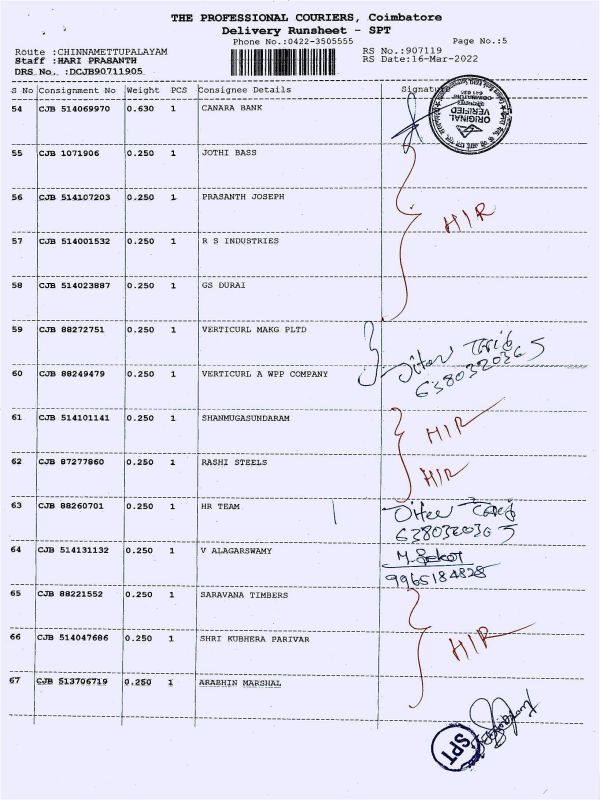 THE PROFESSIONAL COURIERS, Coimbatore
Delivery Runsheet - SPT
Phone No.:0422-3505555 Page No.:5
Route :CHINNAMETTUPALAYAM RS No.:907119
Staff :HARI PRASANTH RS Date:16-Mar-2022
DRS No. :DCJB90711905
S No Consignment No Weight PCS Consignee Details Signature
54 CJB 514069970 0.630 1 CANARA BANK
ORIGINAL VERIFIED
55 CJB 1071906 0.250 1 JOTHI BASS
56 CJB 514107203 0.250 1 PRASANTH JOSEPH HIR
57 CJB 514001532 0.250 1 R S INDUSTRIES
58 CJB 514023887 0.250 1 GS DURAI
59 CJB 88272751 0.250 1 VERTICURL MAKG PLTD
60 CJB 88249479 0.250 1 VERTICURL A WPP COMPANY 6380320365
61 CJB 514101141 0.250 1 SHANMUGASUNDARAM HIR
62 CJB 87277860 0.250 1 RASHI STEELS HIR
63 CJB 88260701 0.250 1 HR TEAM
6380320365
64 CJB 514131132 0.250 1 V ALAGARSWAMY
9965184828
65 CJB 88221552 0.250 1 SARAVANA TIMBERS
66 CJB 514047686 0.250 1 SHRI KUBHERA PARIVAR HIR
67 CJB 513706719 0.250 1 ARABHIN MARSHAL
SPT